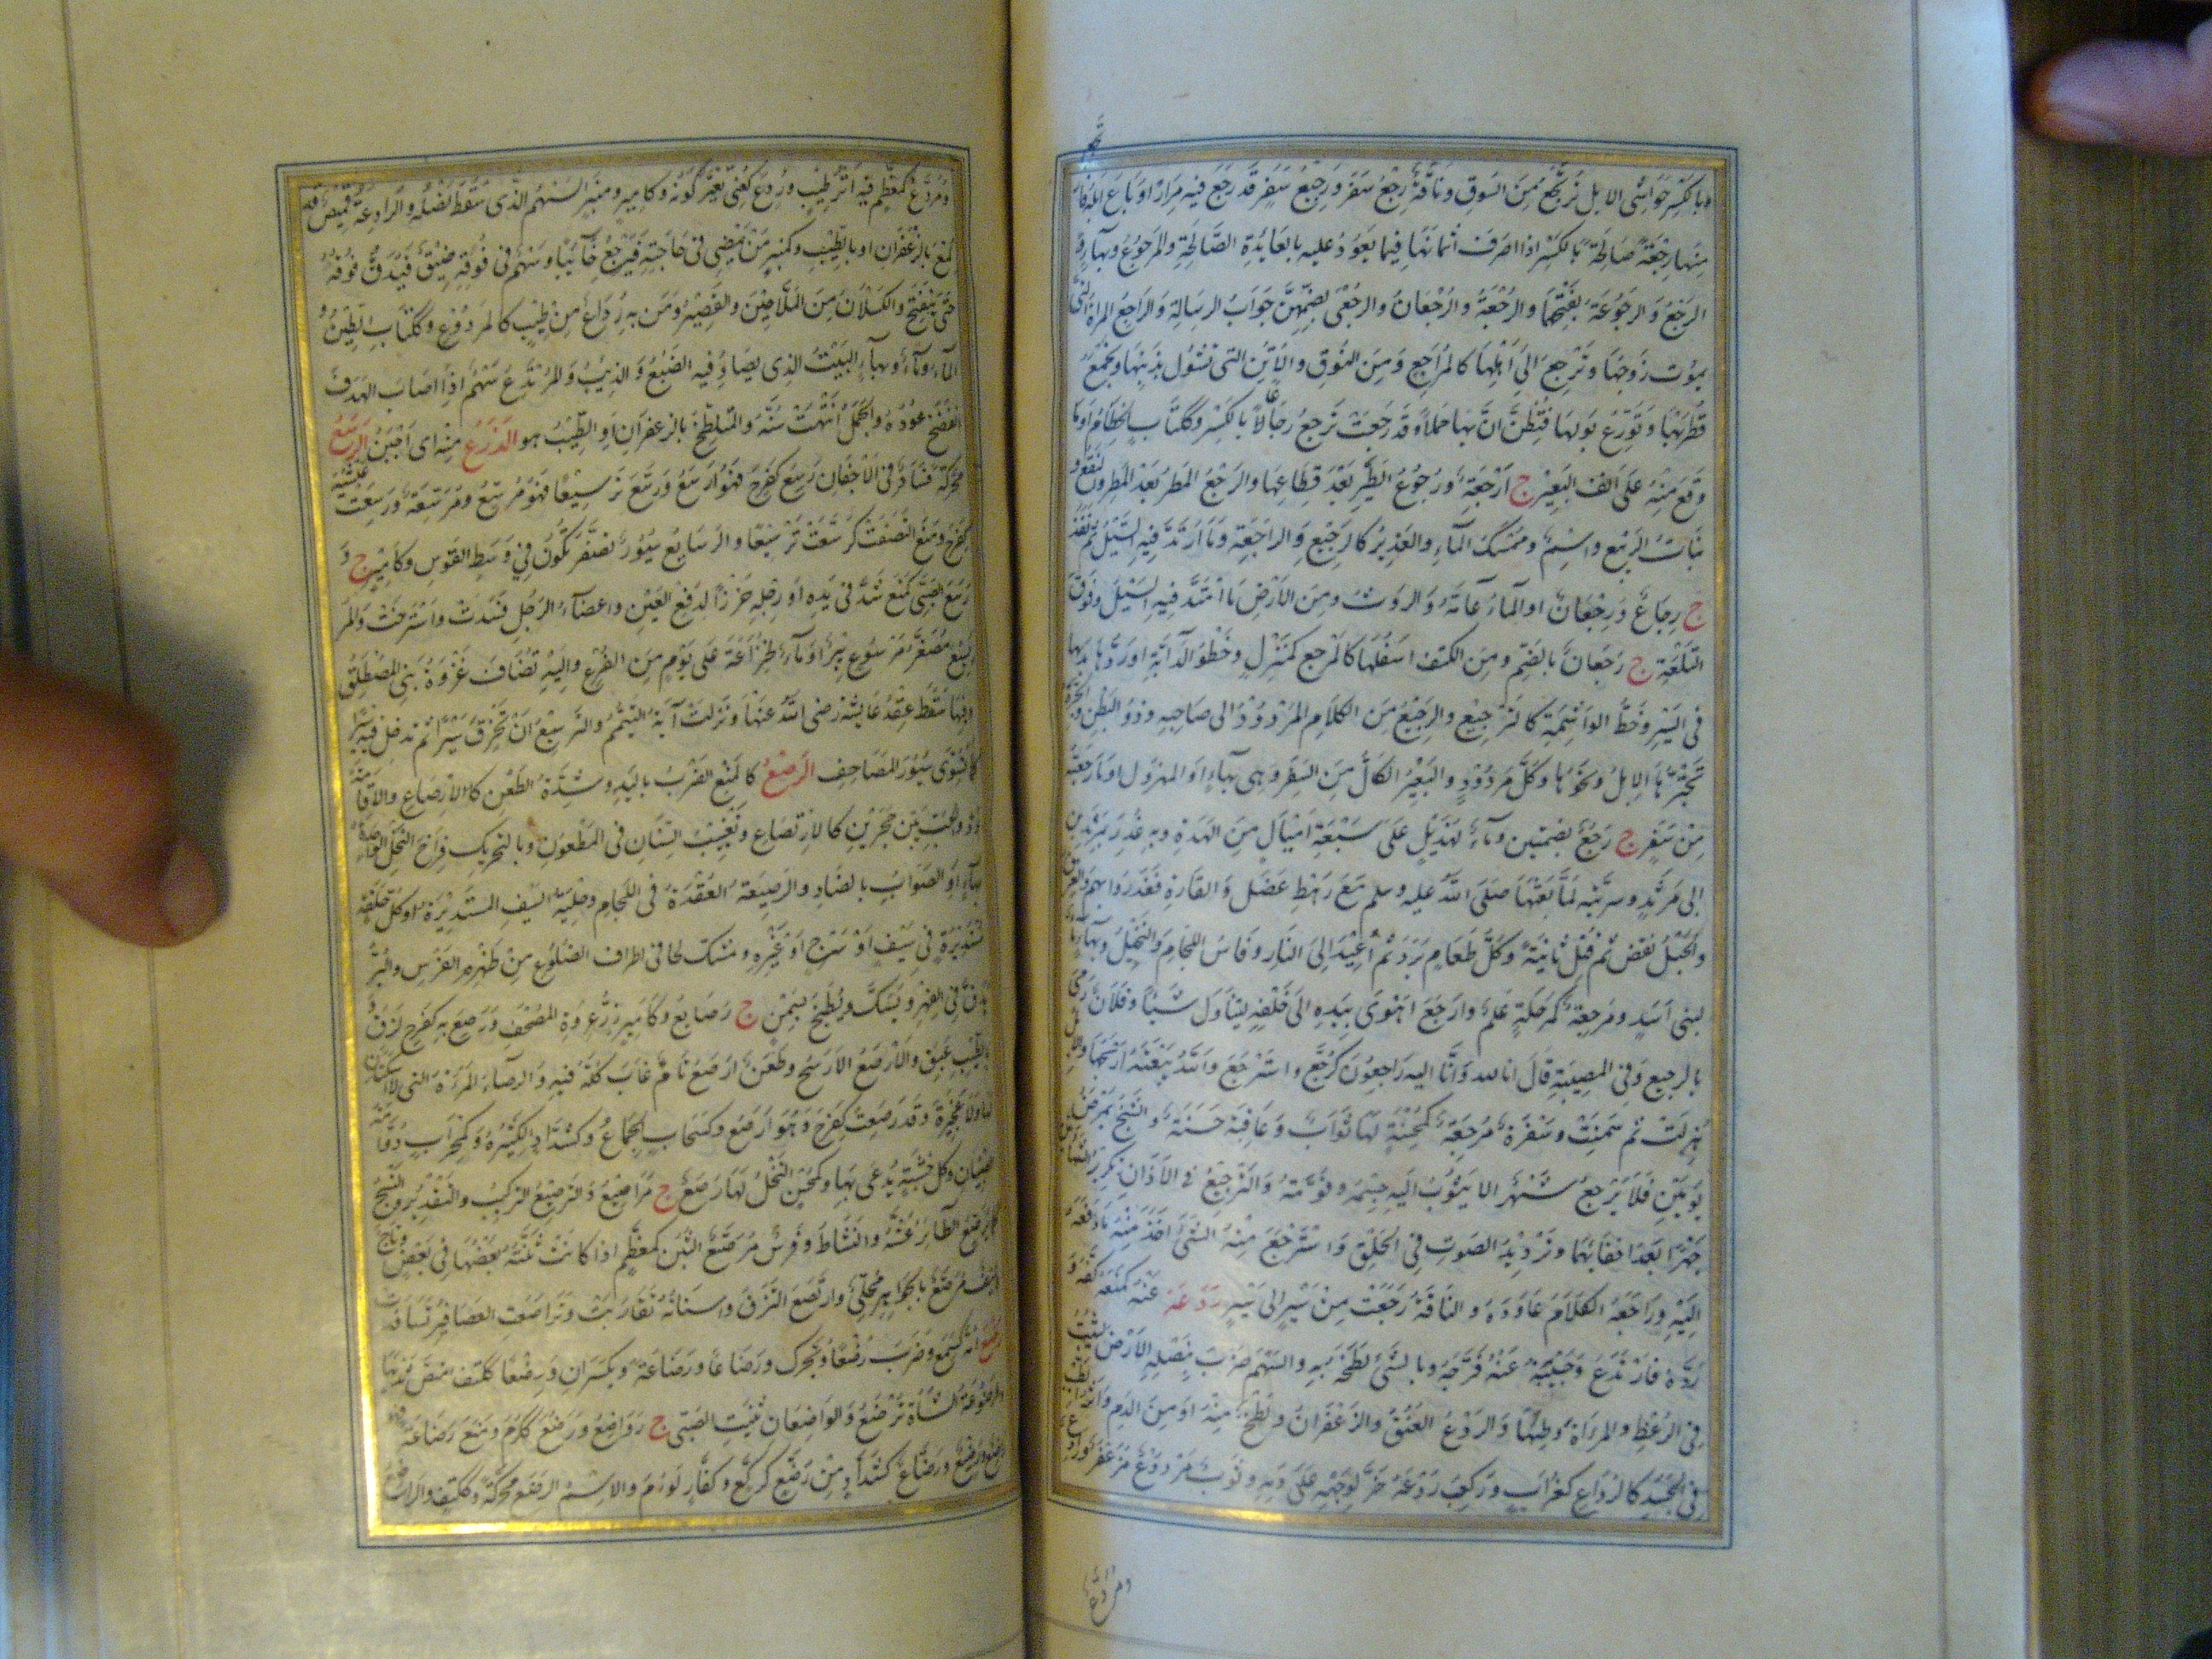 وبالكسر حواشي الابل ترتجع من السوق وناقة رجع سفر ورجيع سفر قد رجع فيه مرارا او باع ابله
منها رجعة صالحة بالكسر اذا صرف اثمانها فيما يعود عليه بالعايدة الصالحة والمرجوع وبهاء
الرجع والرجوعة بفتحهما والرجعة والرجعان والرجعى بضمهن جواب الرسالة والراجع المراة
يموت زوجها وترجع الى اهلها كالمراجع ومن النوق والاتن التي تشول بذنبها وتجمع
قطريها وتوزع بولها فتظن ان بها حملا وقد رجعت ترجع رجاعا بالكسر وككتاب الخطام او ما
وقع منه على انف البعير ج ارجعة ورجوع الطير بعد قطاعها والرجع المطر بعد المطر والنفع
نبات الربيع واسم وممسك الماء والغدير كالرجيع والراجعة وما ارتد فيه السيل ثم نفذ
ج رجاع ورجعان او الماء عامة والروث ومن الارض ما امتد فيه السيل وفوق
التلعة ج رجعان بالضم ومن الكتف اسفلها كالمرجع كمنزل وخطو الدابة او ردها يديها
في السير وخط الواشمة كالترجيع والرجيع من الكلام المردود الى صاحبه وذو البطن
تجتره الابل ونحوها وكل مردود والبعير الكال من السفر وهي بهاء او المهزول او ما رجعته
من سفر ج رجع بضمتين وماء لهذيل على سبعة اميال من الهدة وبه غدر بمرثد بن
ابي مرثد وسريته لما بعثها صلى الله عليه وسلم مع رهط عضل والقارة فغدروا بهم والعرق
والحبل نقض ثم فتل ثانية وكل طعام برد ثم اعيد الى النار وفاس اللجام والبخيل وبهاء
لبني اسد ومرجعة كمرحلة علم وارجع اهوى بيده الى خلفه ليتناول شيئا وفلان رمى
بالرجيع وفي المصيبة قال انا لله وانا اليه راجعون كرجع واسترجع والله بيعته اربحها
هزلت ثم سمنت وسفرة مرجعة كمحسنة لها ثواب وعاقبة حسنة والشيخ يمرض
يومين فلا يرجع شهرا لا يثوب اليه جسمه وقوته والترجيع في الاذان تكرير
جهرا بعد اخفائها وترديد الصوت في الحلق واسترجع منه الشئ اخذ منه ما دفعه
اليه وراجعه الكلام عاوده والناقة رجعت من سير الى سير ردعه عنه كمنعه كفه و
رده فارتدع وجيبه عنه فرجه وبالشئ لطخه به والسهم ضرب بنصله الارض ليثبت
في الرعظ والمراة وطئها والردع العنق والزعفران ولطخ منه او من الدم واثر الطيب
في الجسد كالرداع كغراب وركب ردعه خر لوجهه على دمه وثوب مردوع مزعفر
ومردع
ومردع كمعظم فيه اثر طيب وردع كعني تغير لونه وكامير ومنبر السهم الذي سقط نصله والرادعة قميص قد
لمع بالزعفران او بالطيب وكمنبر من يمضي في حاجته فيرجع خائبا وسهم في فوقه ضيق فيدق فوقه
حتى ينفتح والكسلان من الملاحين والقصير ومن به رداع من طيب كالمردوع وككتاب الطين و
الماء وماء وبهاء البيت الذي يصاد فيه الضبع والذئب والمرتدع سهم اذا اصاب الهدف
انفضخ عوده والجمل انتهت سنه والمتلطخ بالزعفران او الطيب هو الذرع منه اي اجبن الرسع
محركة فساد في الاجفان رسع كفرح فهو ارسع ورسع ترسيعا فهو مرسع ومرسعة ورسعت عينه
كفرح ومنع التصقت كرسعت ترسيعا والرسائع سيور تضفر تكون في وسط القوس وكامير ج و
رسع الصبي كمنع شد في يده او رجله خرزا لدفع العين واعضاء الرجل فسدت واسترخت والمر
يسيع مصغر مرسوع بئر او ماء لخزاعة على يوم من الفرع واليه تضاف غزوة بني المصطلق
وفيها سقط عقد عائشة رضي الله عنها ونزلت اية التيمم والترسيع ان تخرق سيرا ثم تدخل فيه سيرا
كما تسوى سيور المصاحف الرصع كالمنع الضرب باليد وشدة الطعن كالارصاع والاقامة
ودق الحب بين حجرين كالارتصاع وتغييب السنان في المطعون وبالتحريك فراخ النحل الواحدة
بهاء او الصواب بالضاد والرصيعة العقدة في اللجام وحلية السيف المستديرة او كل حلقة
مستديرة في سيف او سرج او غيره ومشك محاني اطراف الضلوع من ظهر الفرس والبر
يدق في الفهر ويبل ويطبخ بسمن ج رصايع وكامير زر عروة المصحف ورصع به كفرح لزق و
بالطيب عبق والارصع الارسح وطعن ارصع تام غاب كله فيه والرصعاء المراة التي لا اسكتان
لها ولا عجيزة وقد رصعت كفرح وهو ارصع وكسحاب الجماع وكشداد الكثيره وكمحراب دوامة
الصبيان وكل خشبة يدحى بها وكمحسن النحل لها رصع ج مراصيع والترصيع التركيب والتقدير والنسج
كما يرصع الطائر عشه والنشاط وفرس مرصع الثنن كمعظم اذا كانت ثننه بعضها في بعض وتاج
وسيف مرصع بالجواهر محلى وارتصع التزق واسنانه تقاربت وتراصعت العصافير تسافدت
رضع امه كسمع وضرب رضعا ويحرك ورضاعا ورضاعة ويكسران ورضعا ككتف امتص ثديها
والرضوعة الشاة ترضع والراضعتان ثنيتا الصبي ج رواضع ورضع ككرم ومنع رضاعة
راضع ورضيع ورضاع كشداد من رضع كركع وكفار لؤم والاسم الرضع محركة وككتف والراضع